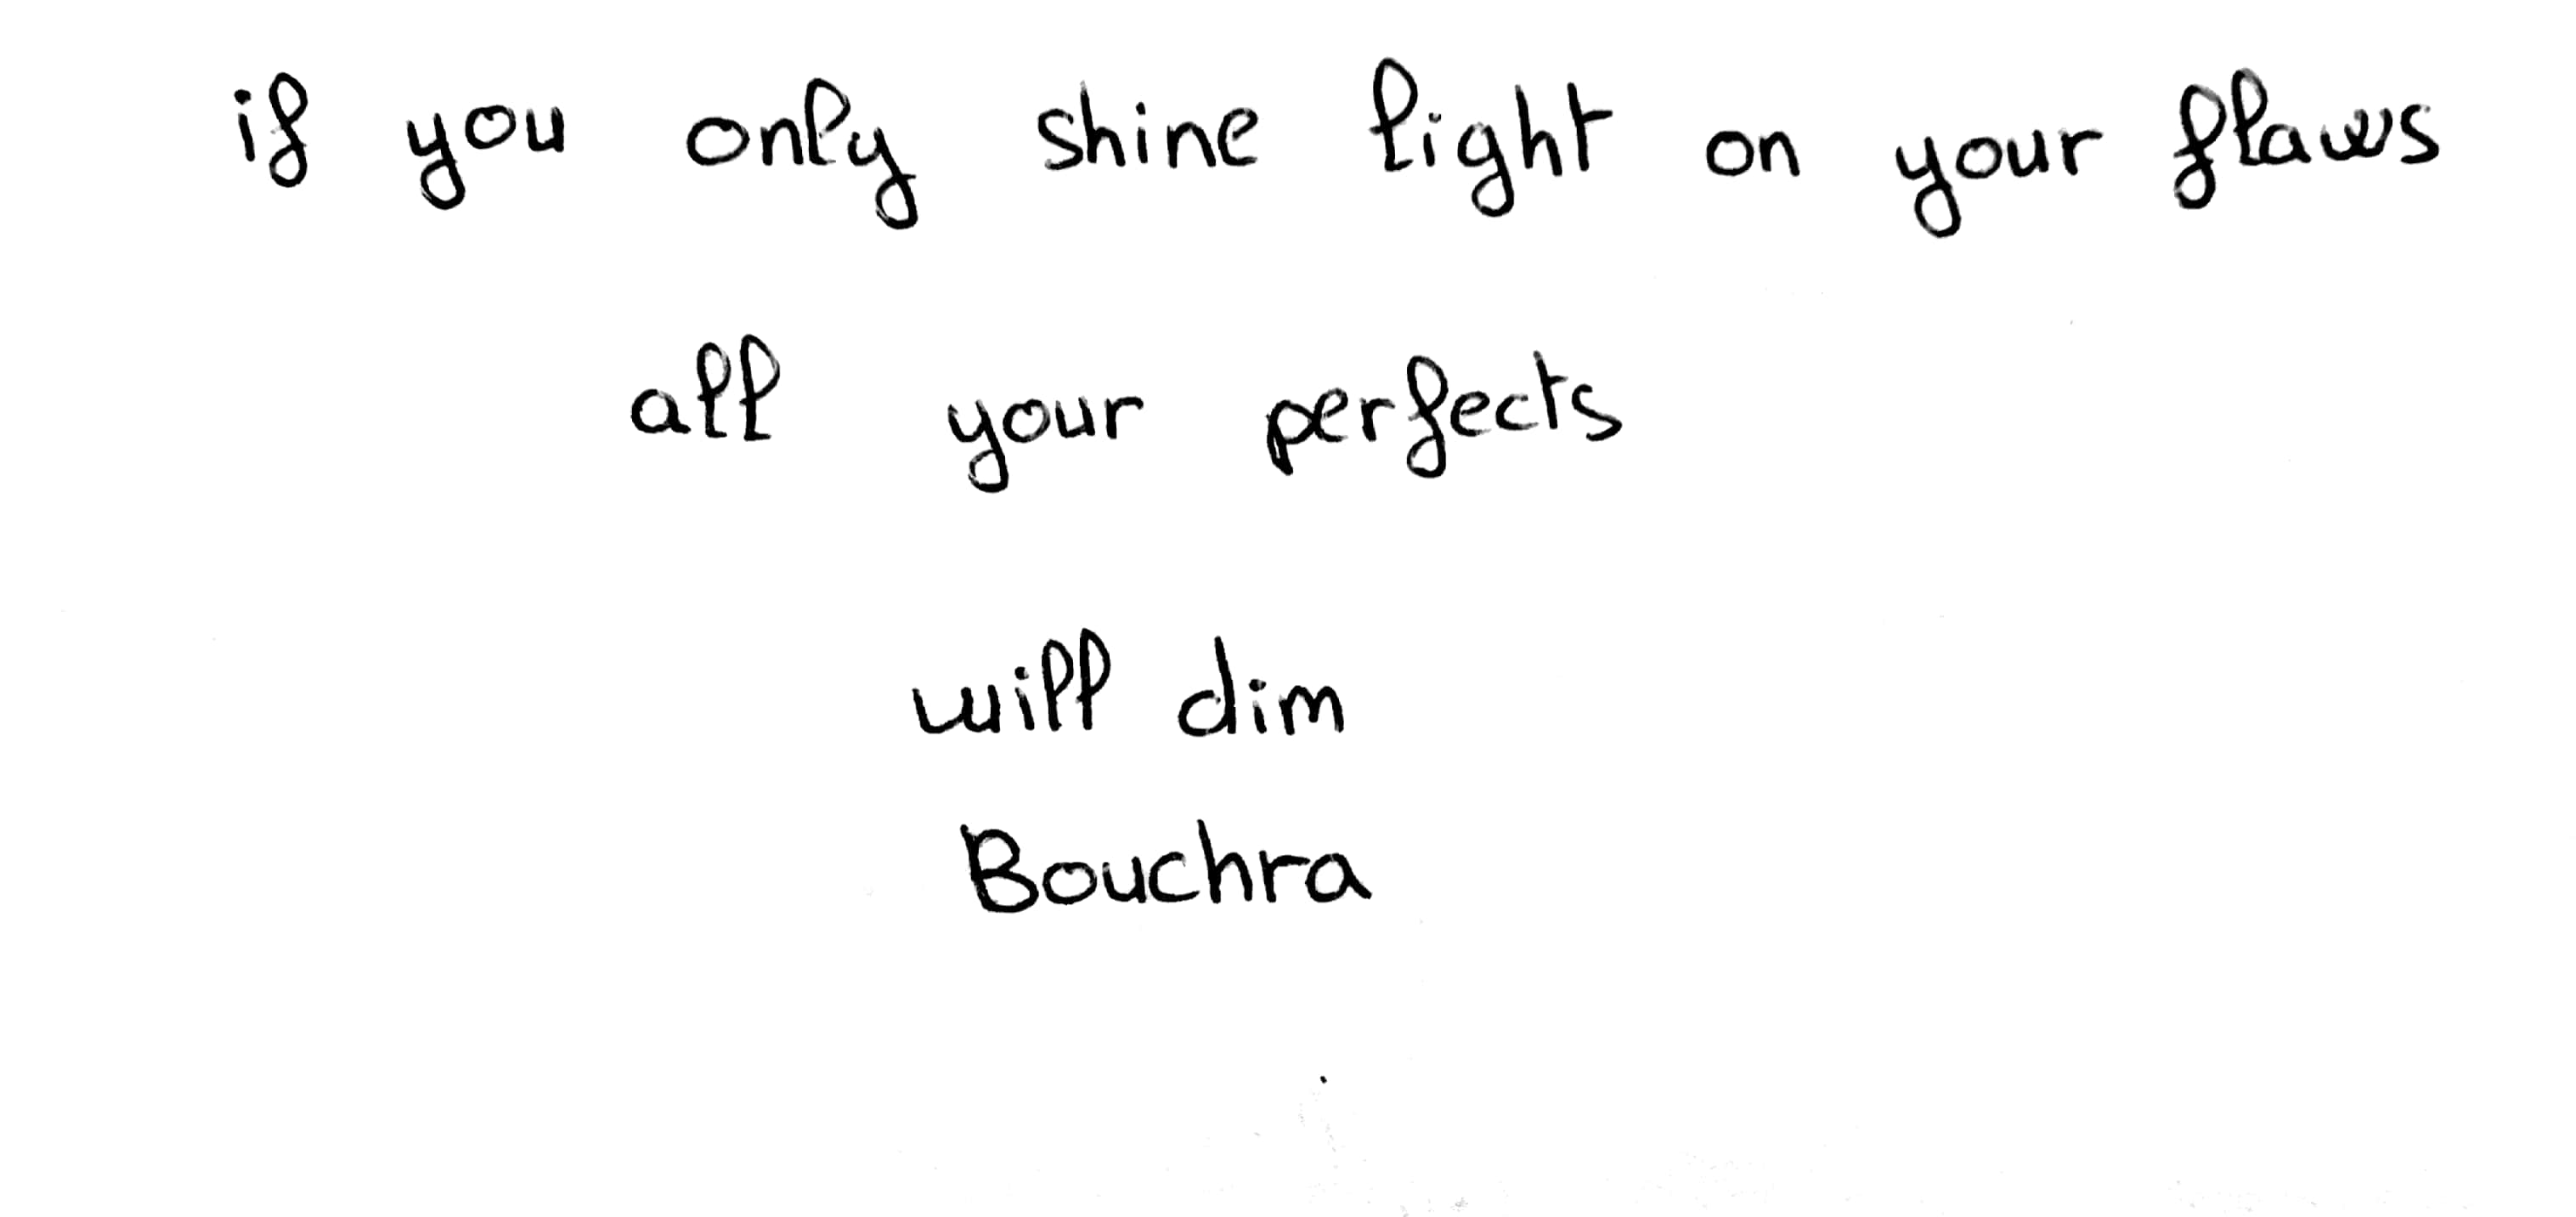 if you only shine light on your flaws
all your perfects
will dim
Bouchra